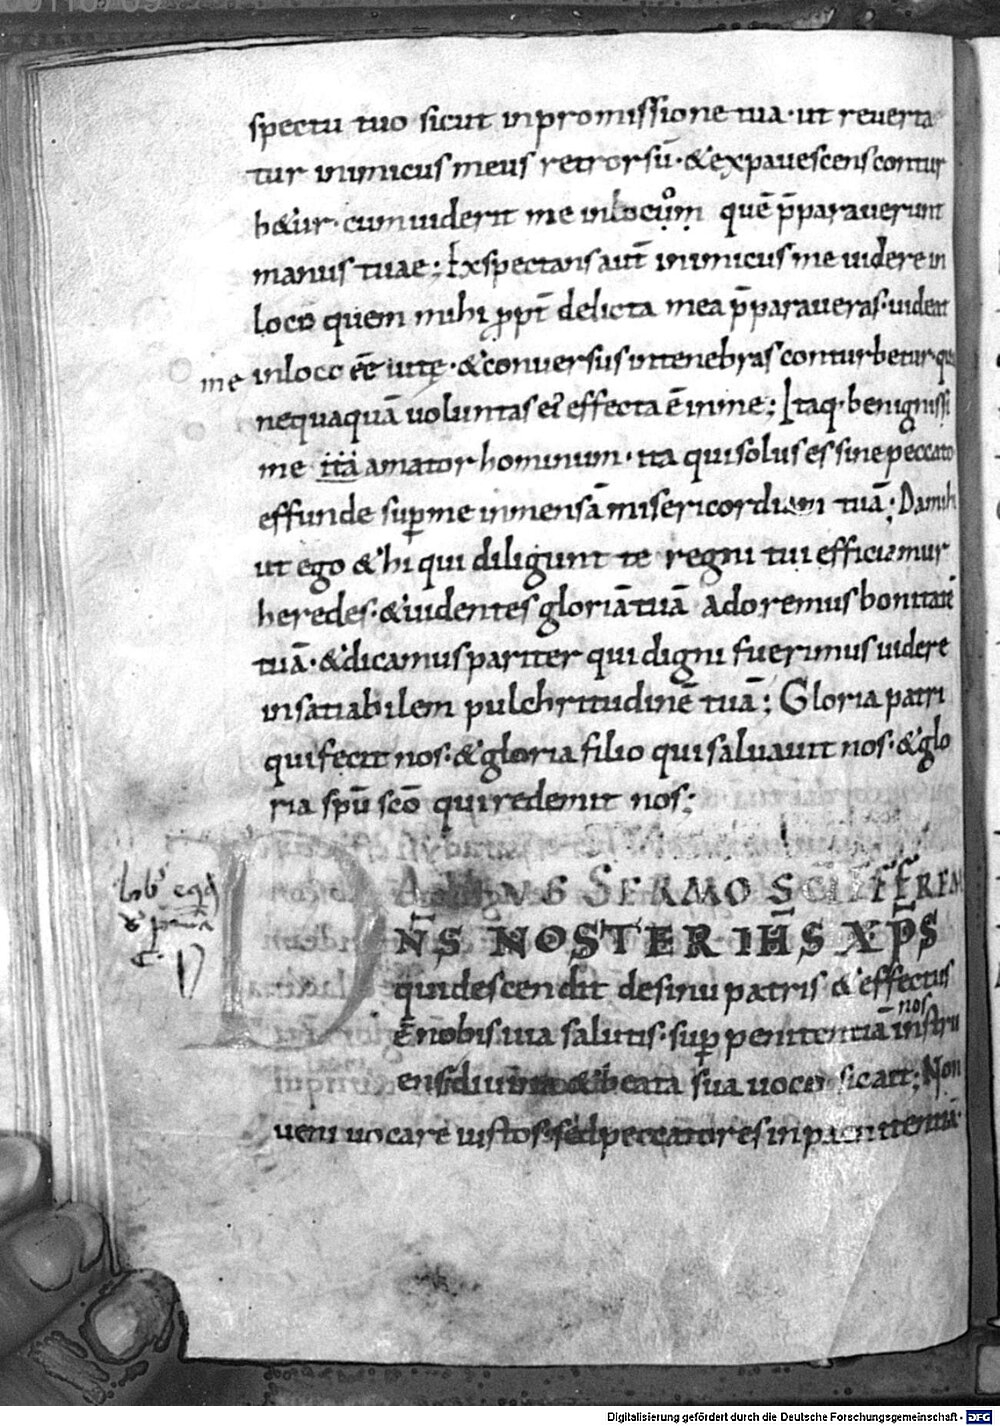 spectu tuo sicut inpromissione tua· ut reuerta
tur inimicus meus retrorsū· &expauescens contur
b&ur· cum uiderit me inlocum quē p̄parauerunt
manus tuae; Exspectans aut̄ inimicus me uidere in
locū quem mihi ꝓpt̄ delicta mea p̄paraueras· uideat
me inloco ēē uitę· &conuersus intenebras conturbetur· qui
nequaquā uoluntas ei effecta ē inme; Itaq· benignissi
me ità amator hominum· ita qui solus es sine peccato
effunde sup̱ me inmensā misericordiam tuā; Da mihi
ut ego &hi qui diligunt te regni tui efficiamur
heredes· &uidentes gloriā tuā adoremus bonitatē
tuā· &dicamus pariter qui digni fuerimus uidere
insatiabilem pulchritudinē tuā; Gloria patri
qui fecit nos· &gloria filio qui saluauit nos· &glo
ria spū scō qui redemit nos;
SERMO SCI EFFREM
D N̄S NOSTER IH̄S XP̄S
qui descendit de sinu patris &effectus
ē nobis uia salutis· sup̱ penitentiā nos instru
ens diuina &beata sua uoce sic ait; Non
ueni uocare iustos· sed peccatores inpaenitentiā·
Digitalisierung gefördert durch die Deutsche Forschungsgemeinschaft - DFG